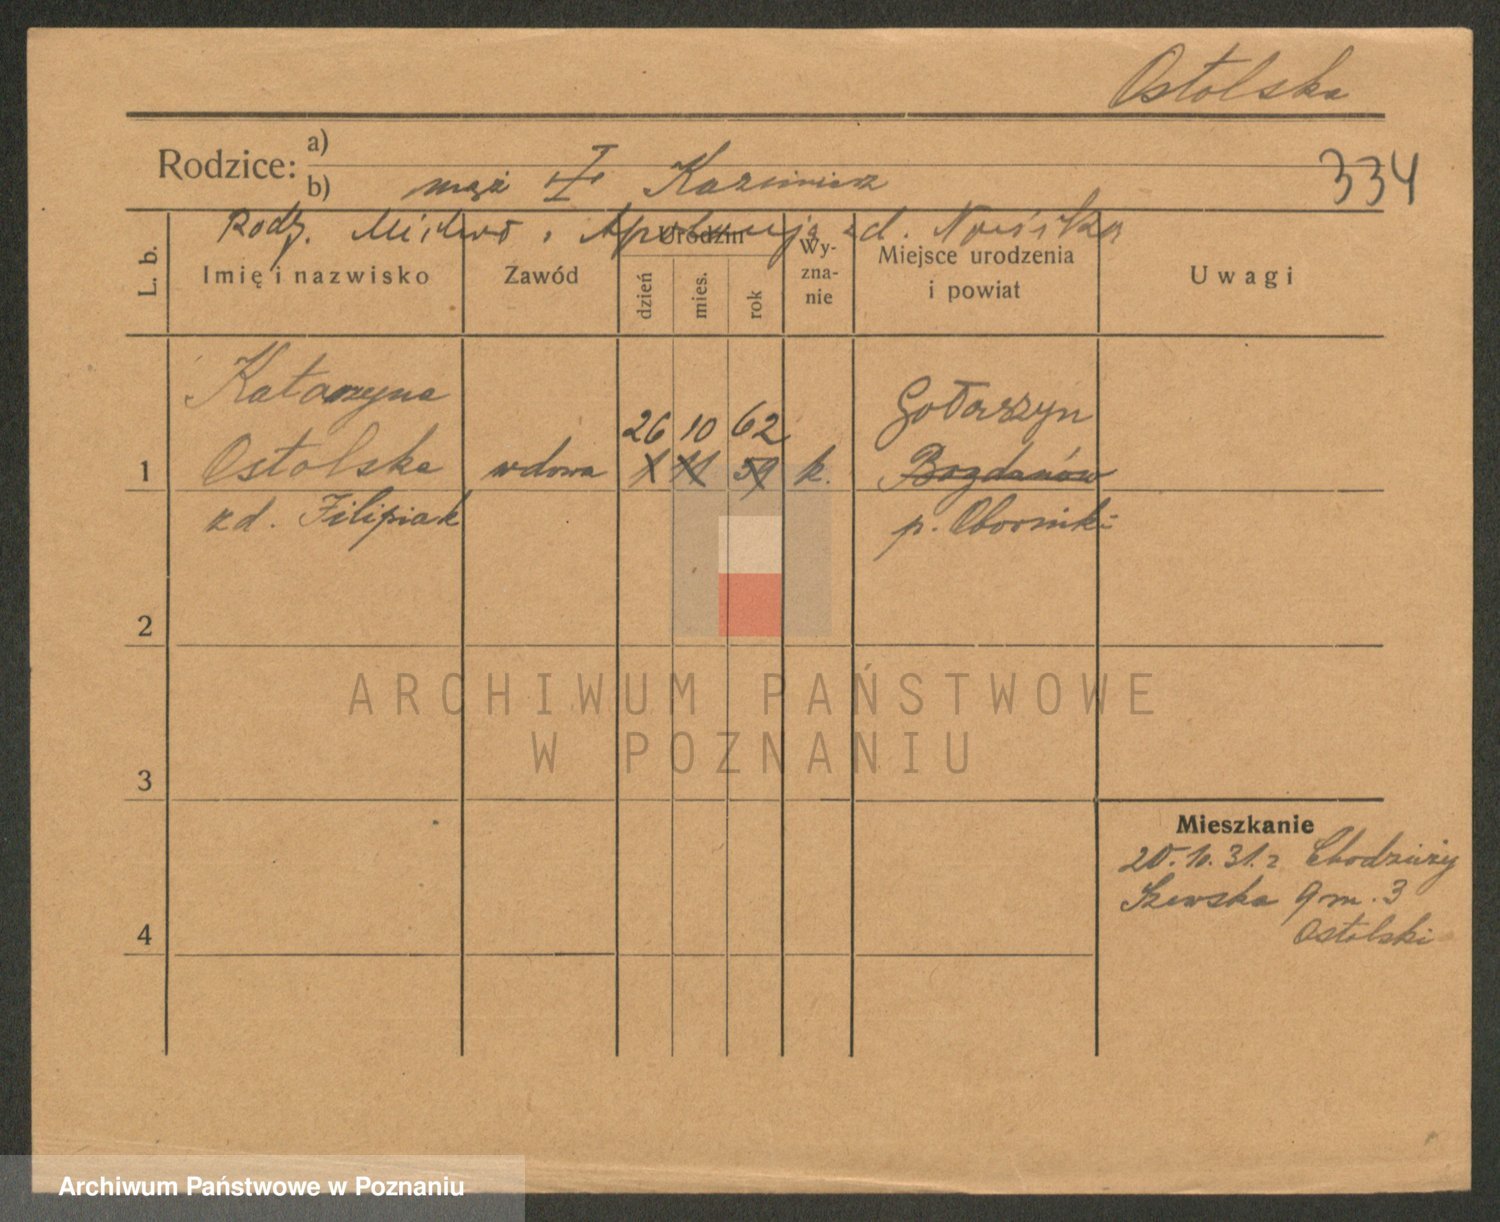 Ostolska
Rodzice: a)
b) mąż Kazimierz
334
Rodz. i Apolonija zd.
L. b.
Imię i nazwisko
Zawód
Urodzin
dzień
mies.
rok
Wy-
zna-
nie
Miejsce urodzenia
i powiat
Uwagi
Katarzyna
26 10 62
Gołaszyn
1 Ostolska wdowa 1 11 59 k. Bogdanów
zd. Filipiak
p. Oborniki
2
ARCHIWUM PAŃSTWOWE
W POZNANIU
3
Mieszkanie
20.10.31. z Chodzieży
Szewska 9 m. 3
Ostolski
4
Archiwum Państwowe w Poznaniu